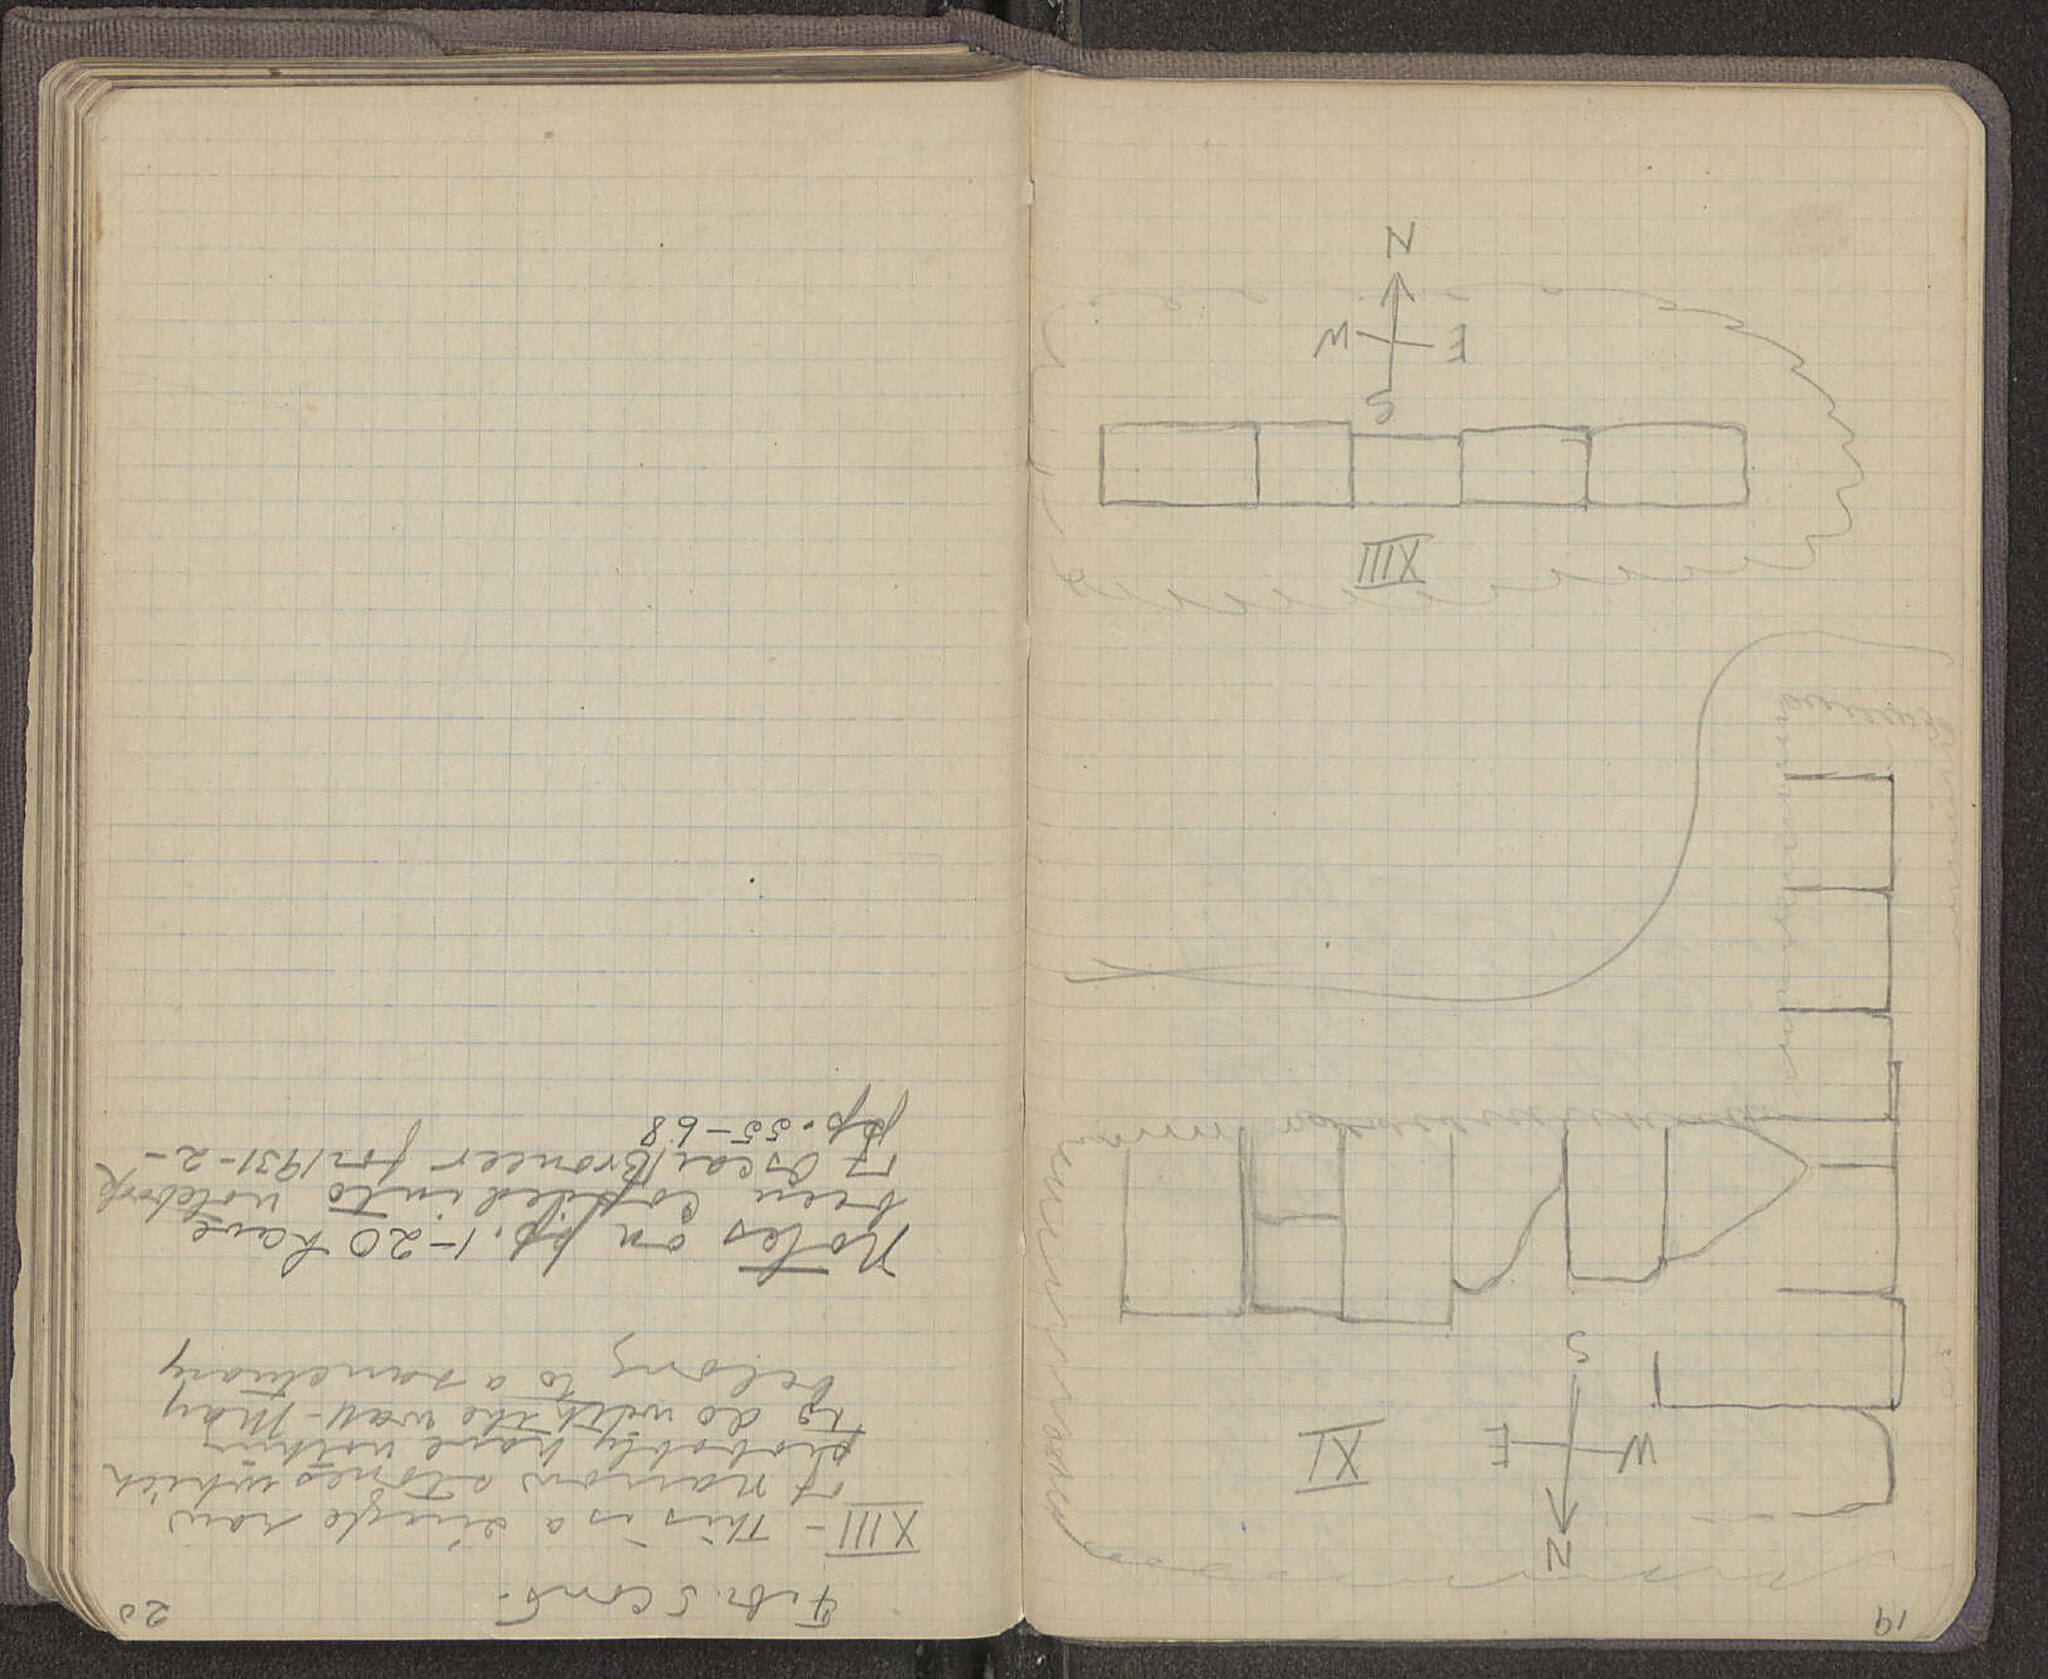 19
N
W E
S
XI
XIII
S
W E
N
20
Febr. 5 cont.
XIII - This is a single row
of narrow stones which
probably have nothing
to do with the wall - May
belong to a sanctuary
Notes on pp. 1-20 have
been copied into notebook
of Oscar Broneer for 1931-2-
pp. 55-68